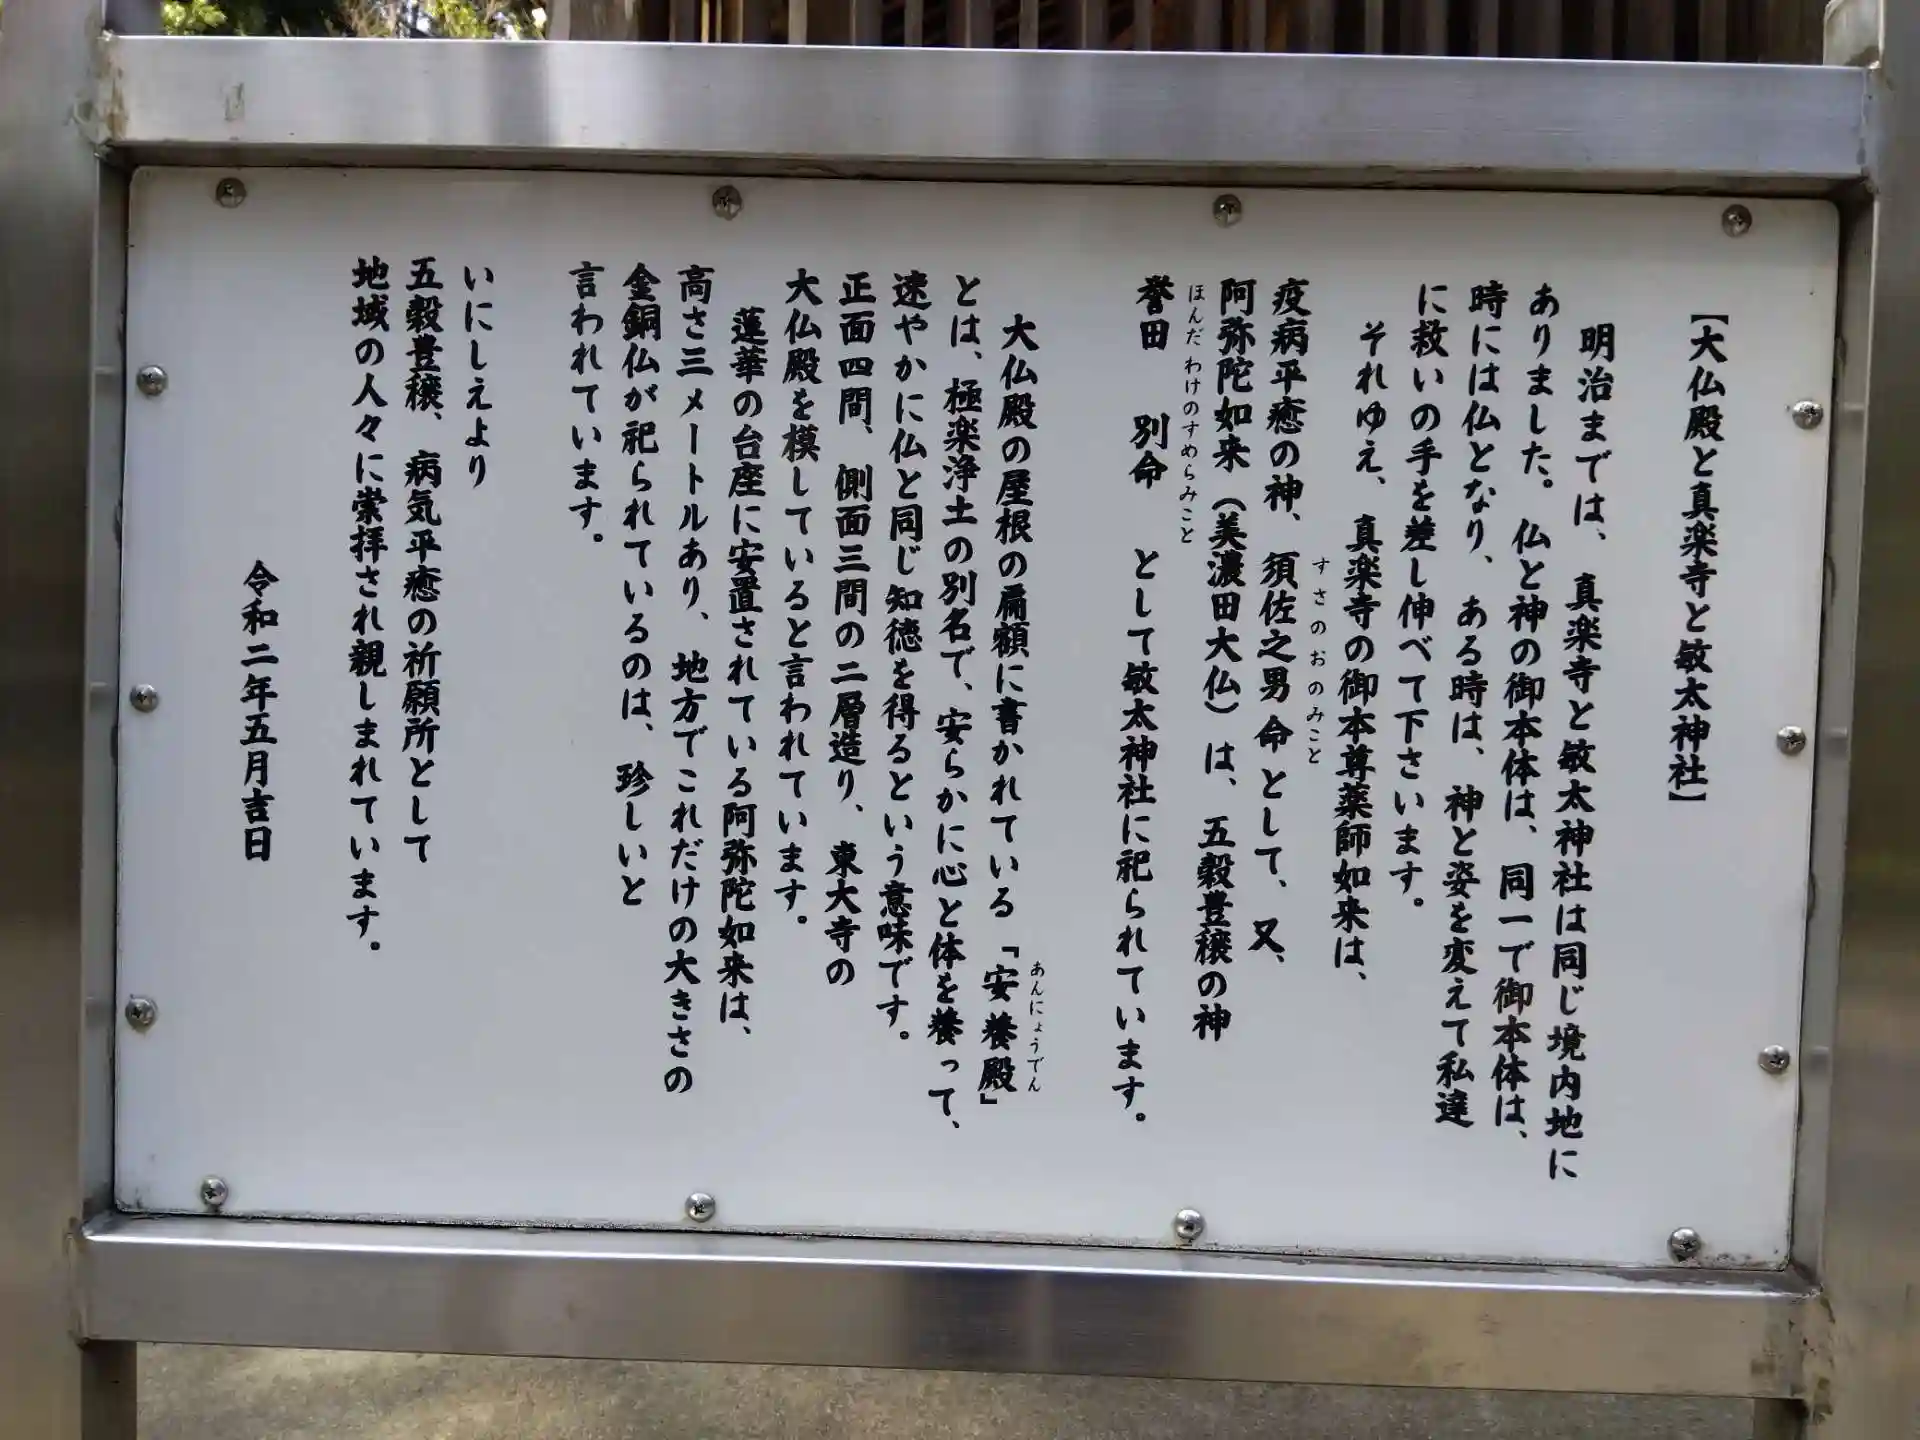 【大仏殿と真楽寺と敏太神社】
明治までは、真楽寺と敏太神社は同じ境内地に
ありました。仏と神の御本体は、同一で御本体は、
時には仏となり、ある時は、神と姿を変えて私達
に救いの手を差し伸べて下さいます。
それゆえ、真楽寺の御本尊薬師如来は、
すさのおのみこと
疫病平癒の神、須佐之男命として、又、
阿弥陀如来（美濃田大仏）は、五穀豊穣の神
ほんだわけのすめらみこと
誉田　別命　として敏太神社に祀られています。
あんにょうでん
大仏殿の屋根の扁額に書かれている「安養殿」
とは、極楽浄土の別名で、安らかに心と体を養って、
速やかに仏と同じ知徳を得るという意味です。
正面四間、側面三間の二層造り、東大寺の
大仏殿を模していると言われています。
蓮華の台座に安置されている阿弥陀如来は、
高さ三メートルあり、地方でこれだけの大きさの
金銅仏が祀られているのは、珍しいと
言われています。
いにしえより
五穀豊穣、病気平癒の祈願所として
地域の人々に崇拝され親しまれています。
令和二年五月吉日